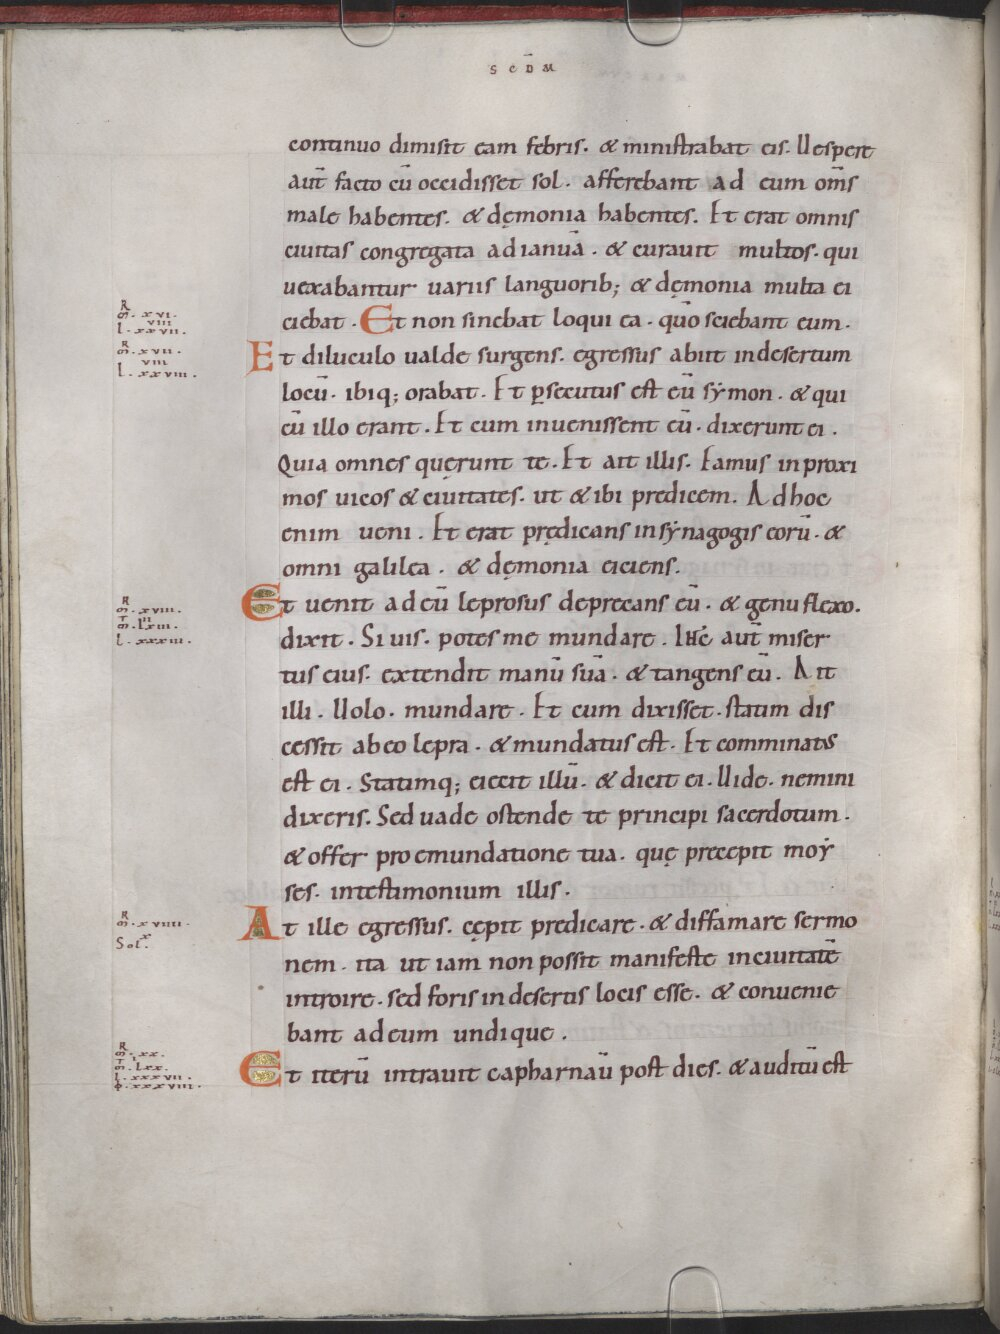 SCD̄M
continuo dimisit eam febris. & ministrabat eis. Uespere
aut̄ facto cū occidisset sol. afferebant ad eum om̄s
male habentes. & dęmonia habentes. Et erat omnis
ciuitas congregata ad ianuā. & curauit multos. qui
uexabantur uariis languorib; & dęmonia multa ei
ciebat. Et non sinebat loqui ea. quō sciebant eum.
R
M. xvi.
viii
L. xxvii.
Et diluculo ualde surgens. egressus abiit in desertum
R
M. xvii.
viii
L. xxviii.
locū. ibiq; orabat. Et ꝑsecutus est eū sẏmon. & qui
cū illo erant. Et cum inuenissent eū. dixerunt ei.
Quia omnes quęrunt te. Et ait illis. Eamus in proxi
mos uicos & ciuitates. ut & ibi predicem. Ad hoc
enim ueni. Et erat prędicans in sẏnagogis eorū. &
omni galilea. & dęmonia eiciens.
Et uenit ad eū leprosus deprecans eū. & genu flexo.
R
M. xviii.
L. xxxiii.
dixit. Si uis. potes me mundare. Ihc̄ aut̄ miser
tus eius. extendit manū suā. & tangens eū. Ait
illi. Uolo. mundare. Et cum dixisset. statim dis
cessit ab eo lepra. & mundatus est. Et comminatus
est ei. Statimq; eiecit illū. & dicit ei. Uide. nemini
dixeris. Sed uade ostende te principi sacerdotum.
& offer pro emundatione tua. quę precepit moẏ
ses. in testimonium illis.
At ille egressus. cępit predicare. & diffamare sermo
R
M. xviiii.
x
Sol.
nem. ita ut iam non possit manifeste in ciuitatē
introire. sed foris in desertis locis esse. & conuenie
bant ad eum undique.
Et iterū intrauit capharnaū post dies. & auditū est
R
M. xx.
L. xxxvii.